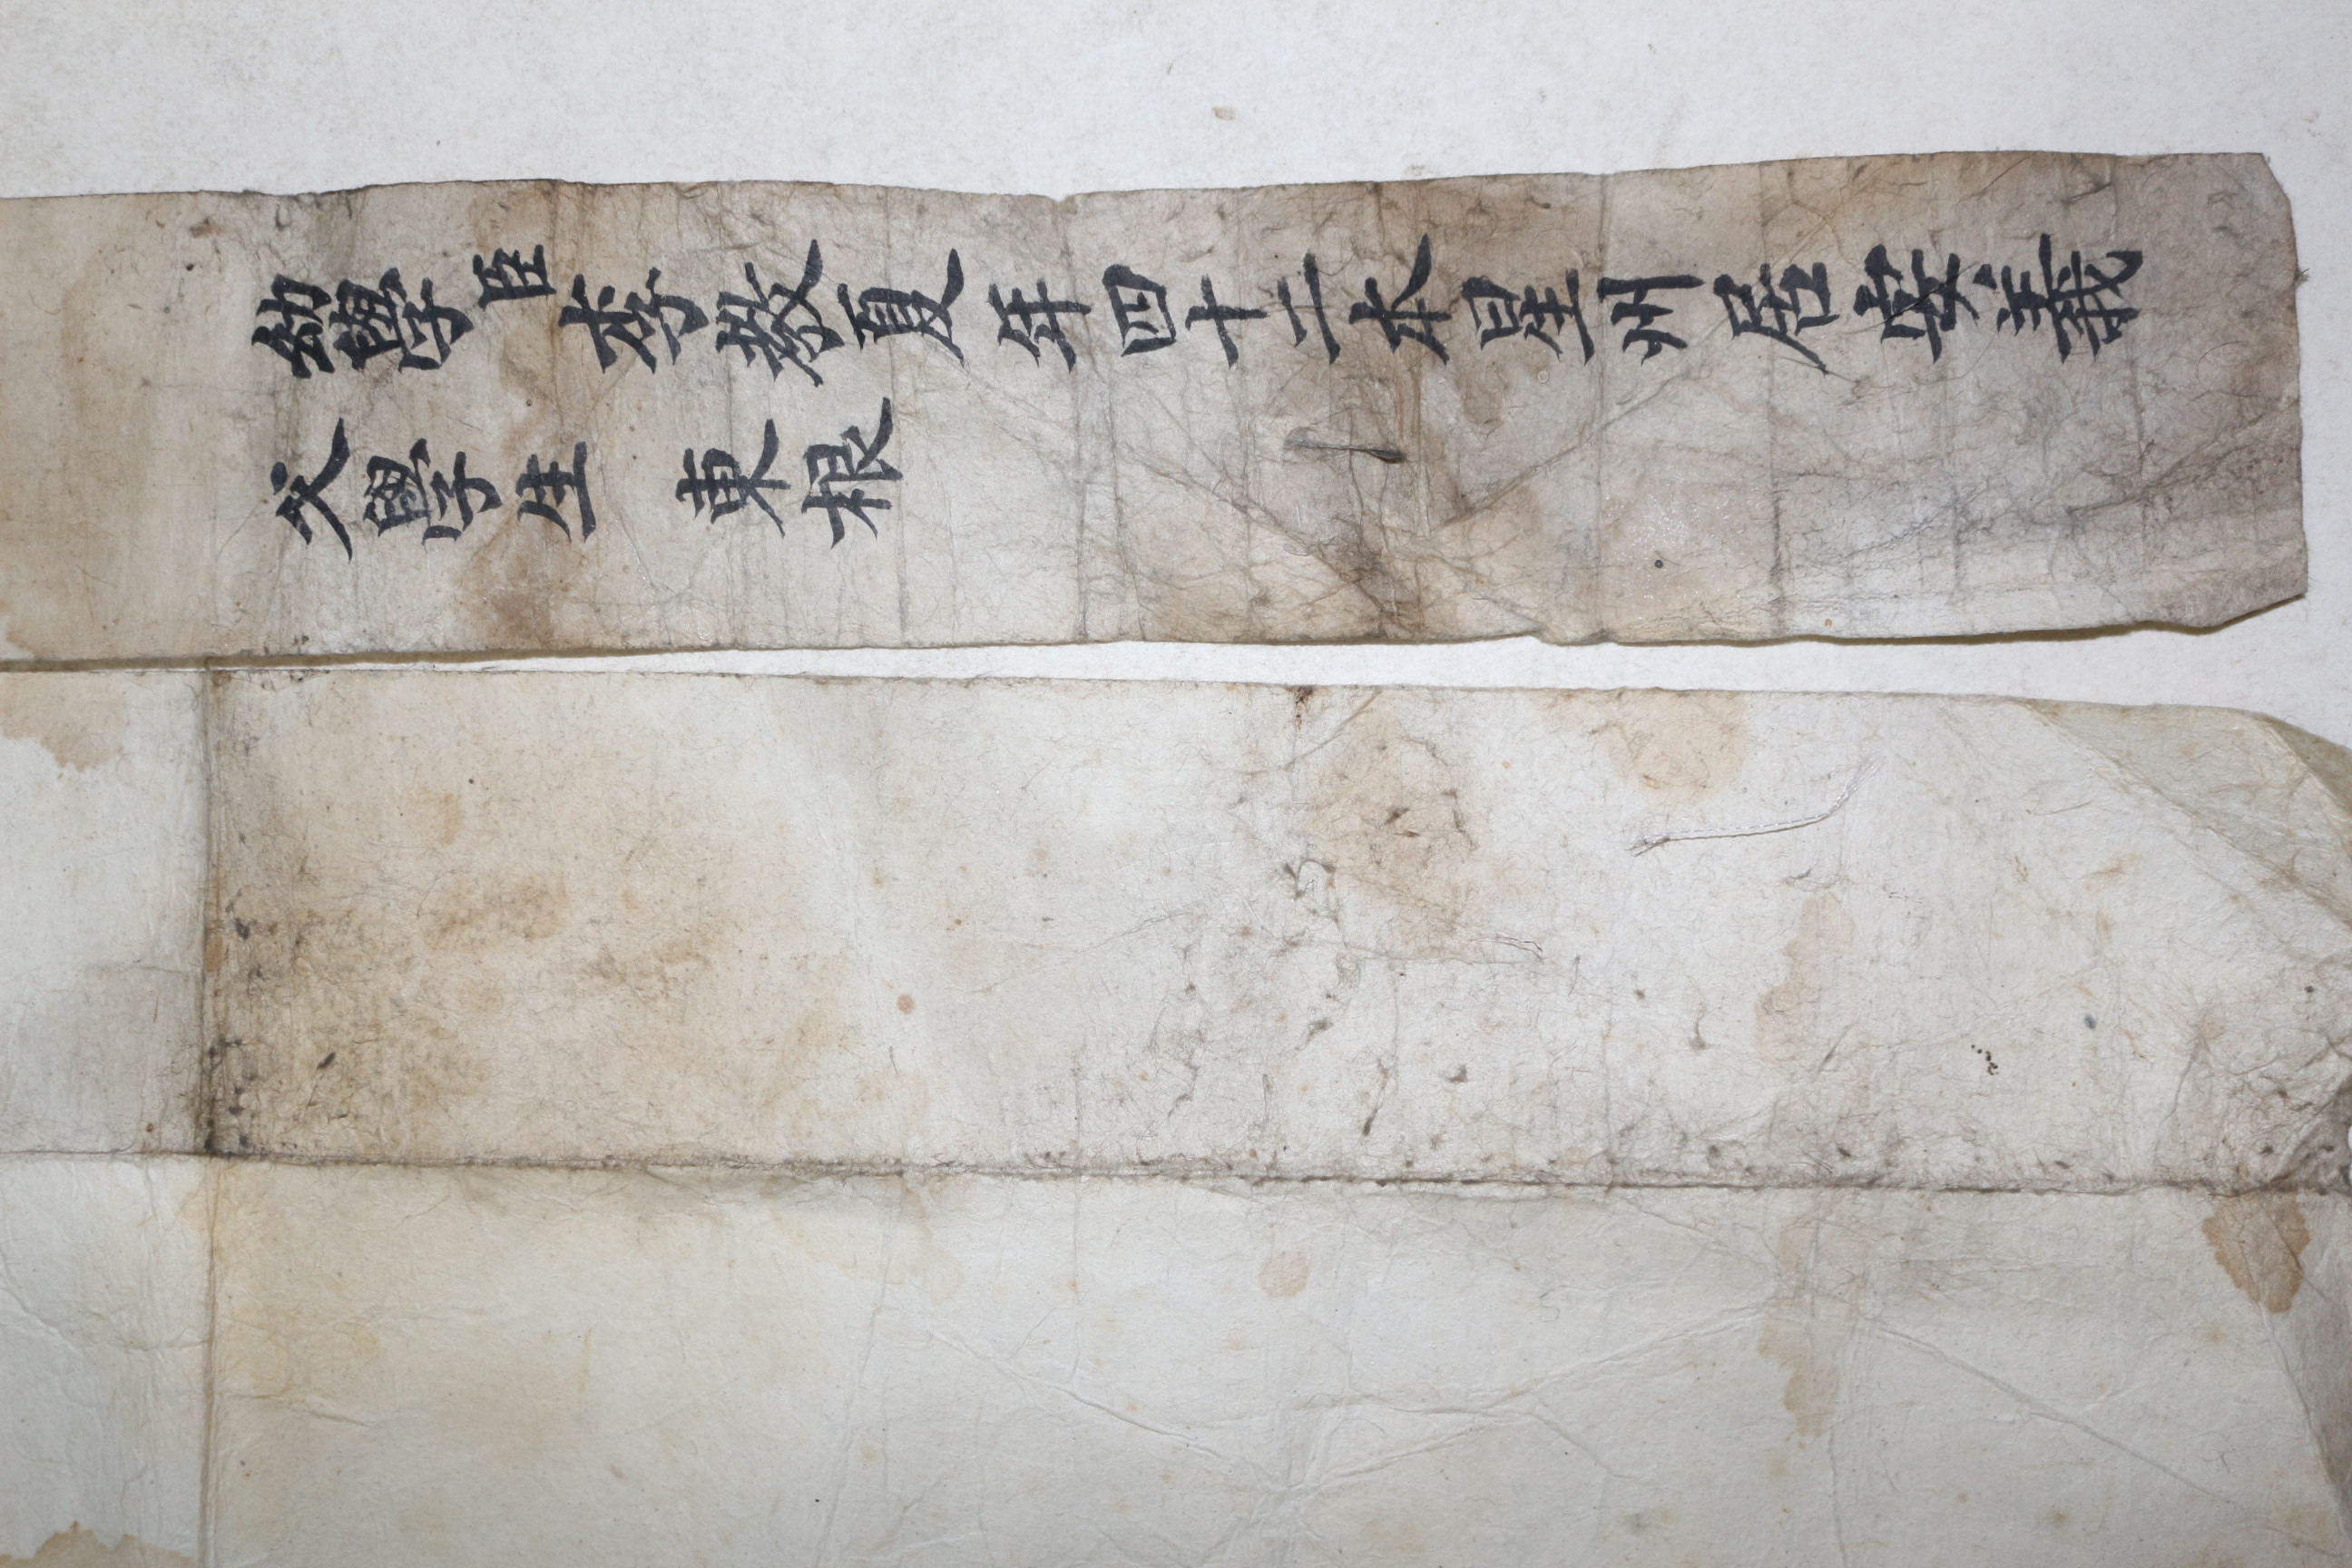 幼學臣李夏年四十二本星州居安義
父學生 東根